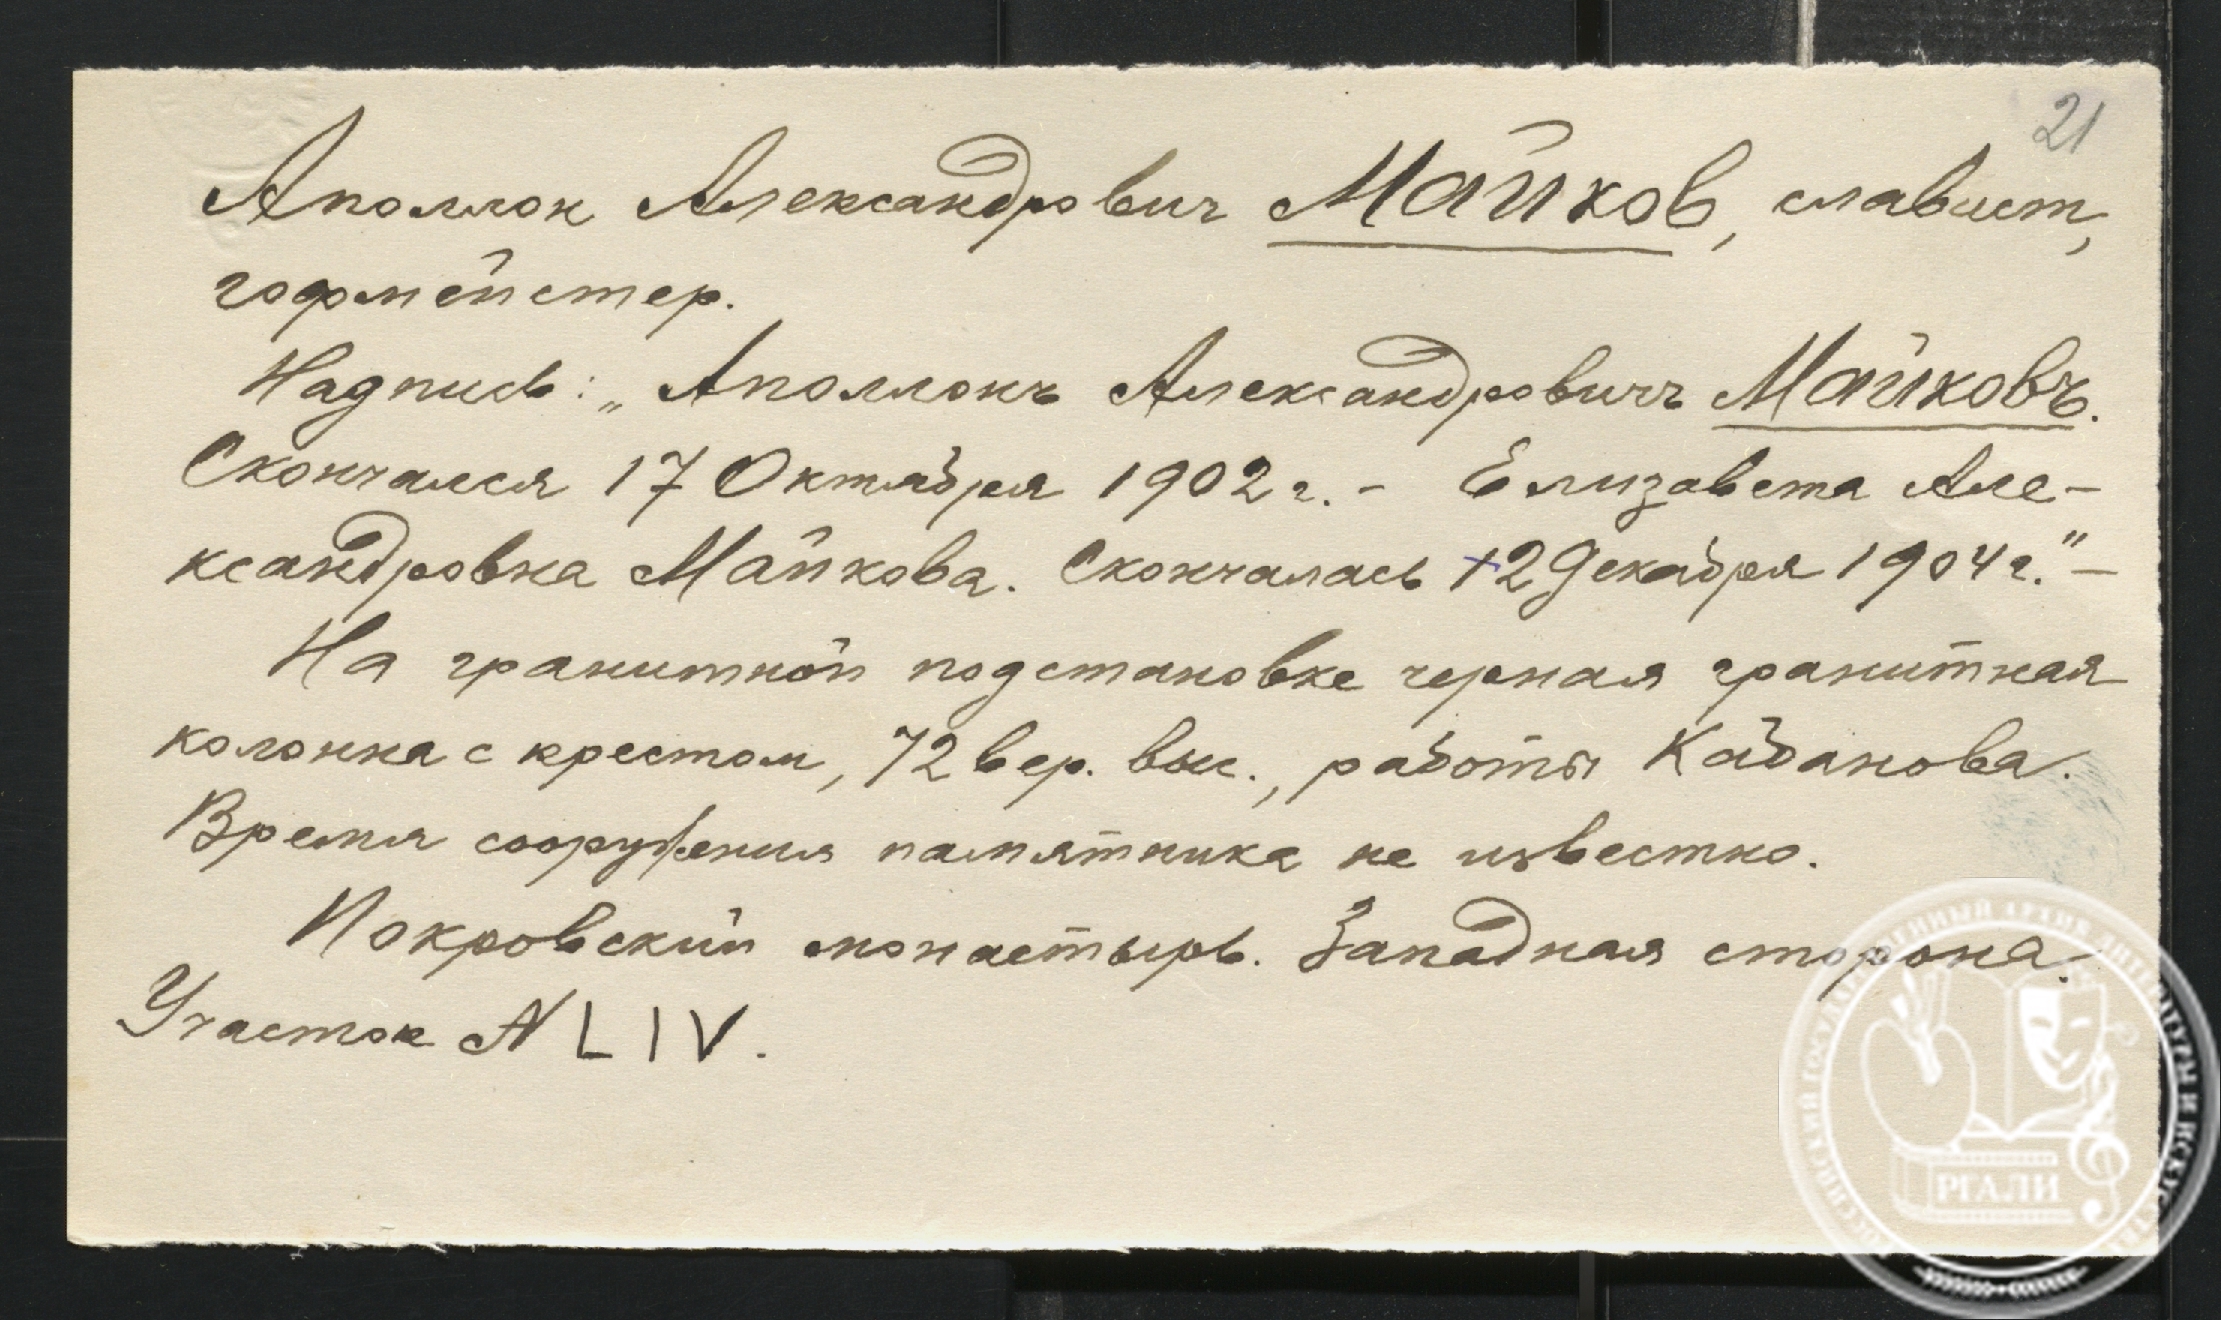 21
Аполлон Александрович Майков, славист,
гофмейстер.
Надпись: „Аполлонъ Александровичъ Майковъ.
Скончался 17 Октября 1902 г. - Елизавета Але-
ксандровна Майкова. Скончалась 12 Декабря 1904 г." -
На гранитной подстановке черная гранитная
колонна с крестом, 72 вер. выс., работы Кабанова.
Время сооружения памятника не известно.
Покровский монастырь. Западная сторона.
Участок N LIV.
РОССИЙСКИЙ ГОСУДАРСТВЕННЫЙ АРХИВ ЛИТЕРАТУРЫ И ИСКУССТВА
РГАЛИ